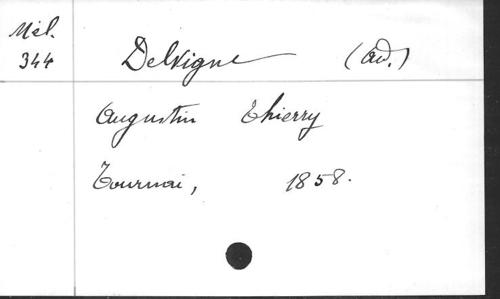 Mél.
344
Delvigne (Ad.)
Augustin Thierry
Tournai, 1858.